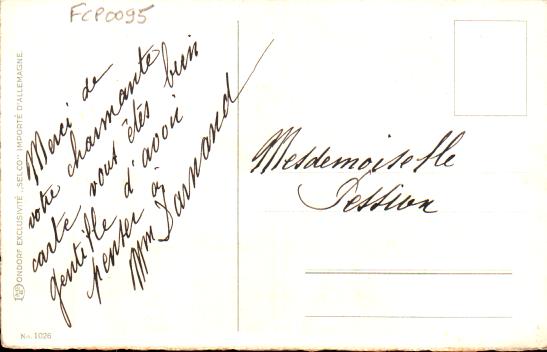 FCP0095
Merci de
votre charmante
carte vous êtês bien
gentille d'avoir
penser à
Mm Darnand
Mesdemoiselle
Pession
ONDORF EXCLUSIVITÉ „SELCO" IMPORTÉ D'ALLEMAGNE
No. 1026